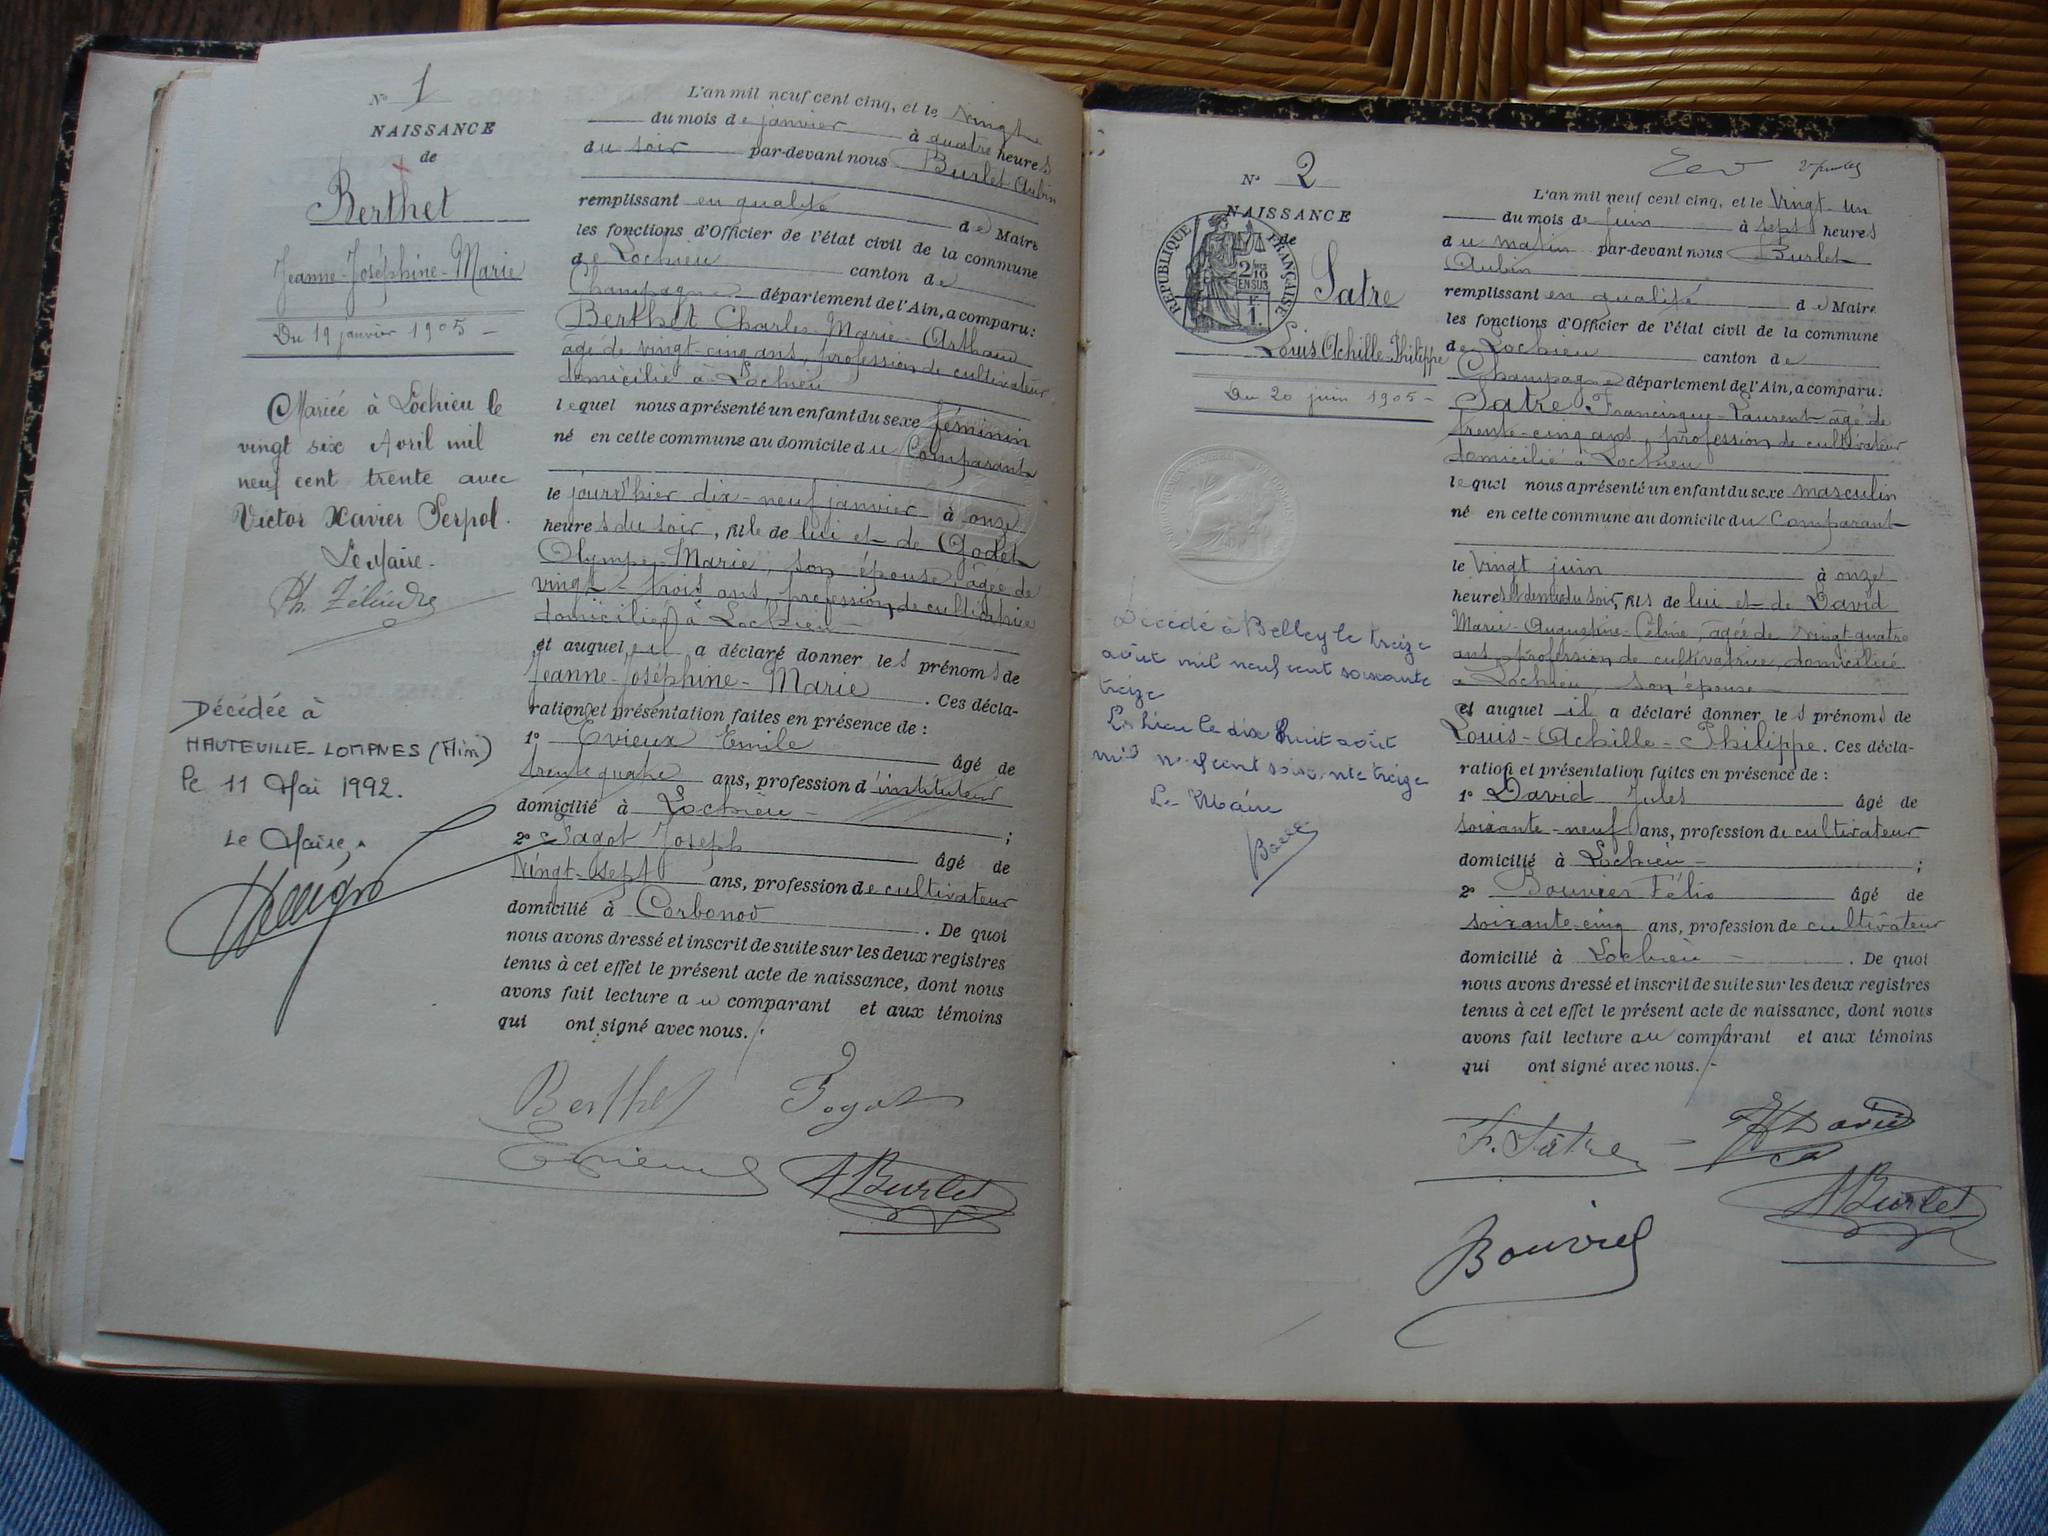 N° 1
NAISSANCE
de
Berthet
Jeanne-Joséphine-Marie
Du 19 janvier 1905 -
Mariée à Lochieu le
vingt six Avril mil
neuf cent trente avec
Victor Xavier Serpol.
Le Maire.
Décédée à
HAUTEVILLE-LOMPNES (Ain)
le 11 Mai 1992.
Le Maire.
L'an mil neuf cent cinq, et le vingt
du mois de janvier à quatre heures
du soir par-devant nous Burlet Aubin
remplissant en qualité de Maire
les fonctions d'Officier de l'état civil de la commune
de Lochieu canton de
Champagne département de l'Ain, a comparu:
Berthet Charles-Marie-Arthaud
âgé de vingt-cinq ans, profession de cultivateur
domicilié à Lochieu
lequel nous a présenté un enfant du sexe féminin
né en cette commune au domicile du Comparant
le jourd'hier dix-neuf janvier à onze
heures du soir, fille de lui et de Godet
Olympe-Marie, son épouse, âgée de
vingt-trois ans, profession de cultivatrice
domiciliée à Lochieu
et auquel il a déclaré donner les prénoms de
Jeanne-Joséphine-Marie. Ces décla-
ration et présentation faites en présence de :
1° Evieux Emile âgé de
trente quatre ans, profession d'instituteur
domicilié à Lochieu ;
2° Pagot Joseph âgé de
Vingt-sept ans, profession de cultivateur
domicilié à Corbonod . De quoi
nous avons dressé et inscrit de suite sur les deux registres
tenus à cet effet le présent acte de naissance, dont nous
avons fait lecture au comparant et aux témoins
qui ont signé avec nous.
Berthet Pagot
Evieux ABurlet
N° 2
NAISSANCE
de
RÉPUBLIQUE FRANÇAISE
2/10 EN SUS
1F
Satre
Louis Achille-Philippe
Du 20 juin 1905 -
Décédé à Belley le treize
août mil neuf cent soixante
treize
Lochieu le dix huit août
mil neuf cent soixante treize
Le Maire
L'an mil neuf cent cinq, et le Vingt-un
du mois de juin à sept heures
du matin par-devant nous Burlet
Aubin
remplissant en qualité de Maire
les fonctions d'Officier de l'état civil de la commune
de Lochieu canton de
Champagne département de l'Ain, a comparu:
Satre Francisque-Laurent âgé de
trente-cinq ans, profession de cultivateur
domicilié à Lochieu
lequel nous a présenté un enfant du sexe masculin
né en cette commune au domicile du Comparant
le Vingt juin à onze
heures et demie du soir, fils de lui et de David
Marie-Augustine-Céline, âgée de vingt-quatre
ans, profession de cultivatrice, domiciliée
à Lochieu, son épouse
et auquel il a déclaré donner les prénoms de
Louis-Achille-Philippe. Ces décla-
ration et présentation faites en présence de :
1° David Jules âgé de
soixante-neuf ans, profession de cultivateur
domicilié à Lochieu ;
2° Bouvier Félix âgé de
soixante-cinq ans, profession de cultivateur
domicilié à Lochieu . De quoi
nous avons dressé et inscrit de suite sur les deux registres
tenus à cet effet le présent acte de naissance, dont nous
avons fait lecture au comparant et aux témoins
qui ont signé avec nous.
F. Sâtre David
ABurlet
Bouvier